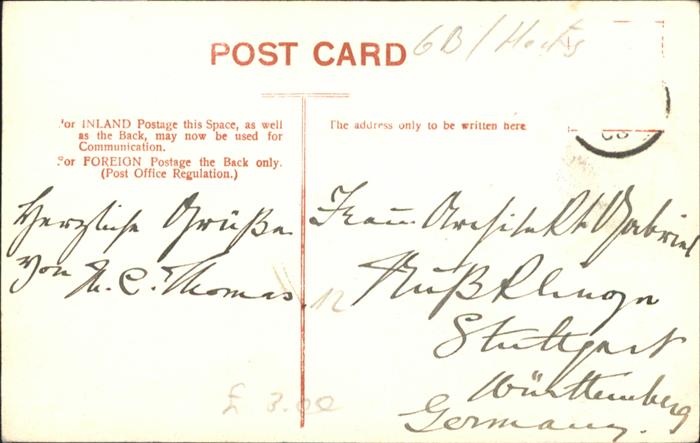 POST CARD
6B / Herts
For INLAND Postage this Space, as well
as the Back, may now be used for
Communication.
For FOREIGN Postage the Back only.
(Post Office Regulation.)
The address only to be written here
Herzliche Grüße
von C. Thomas.
Frau Architekt Gabriel
Stuttgart
Württemberg
Germany.
£ 3.00